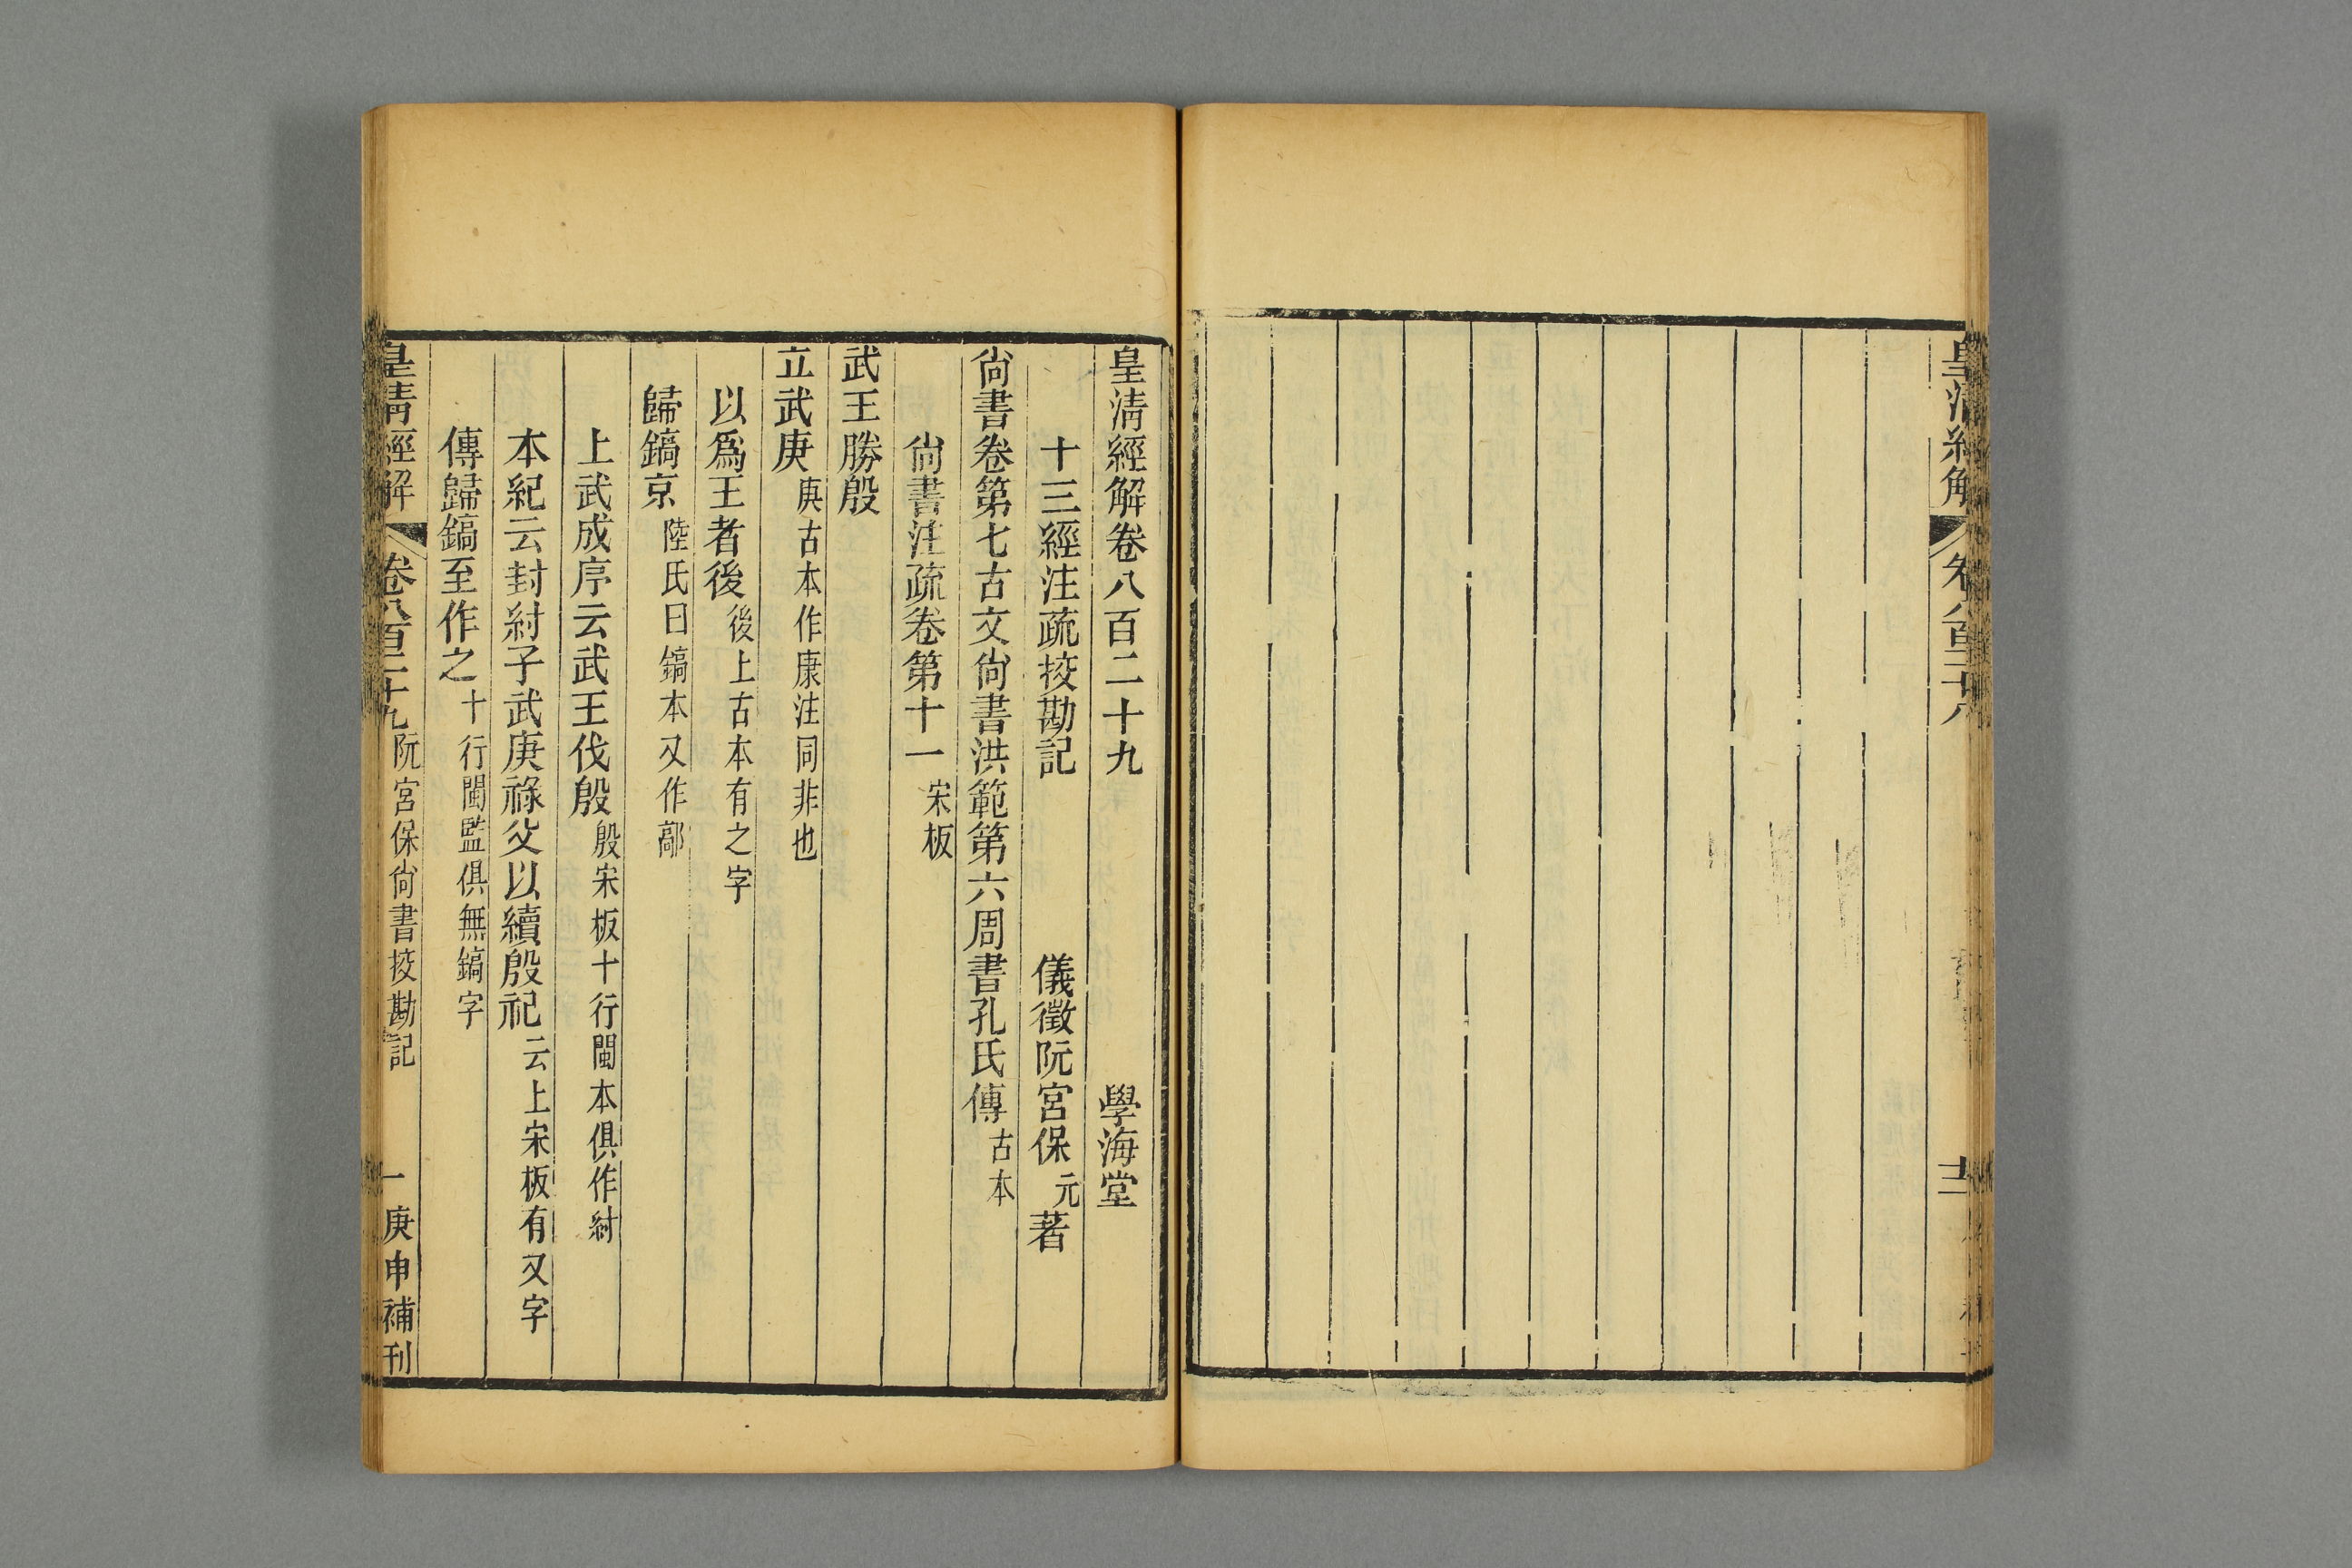 皇清經解
卷八百二十八
十二
皇清經解卷八百二十九 學海堂
十三經注疏挍勘記 儀徵阮宮保元著
尙書卷第七古文尙書洪範第六周書孔氏傳古本
尙書注疏卷第十一宋板
武王勝殷
立武庚庚古本作康注同非也
以爲王者後後上古本有之字
歸鎬京陸氏曰鎬本又作鄗
上武成序云武王伐殷殷宋板十行閩本俱作紂
本紀云封紂子武庚祿父以續殷祀云上宋板有又字
傳歸鎬至作之十行閩監俱無鎬字
皇清經解 卷八百二十九 阮宮保尙書挍勘記 一 庚申補刊